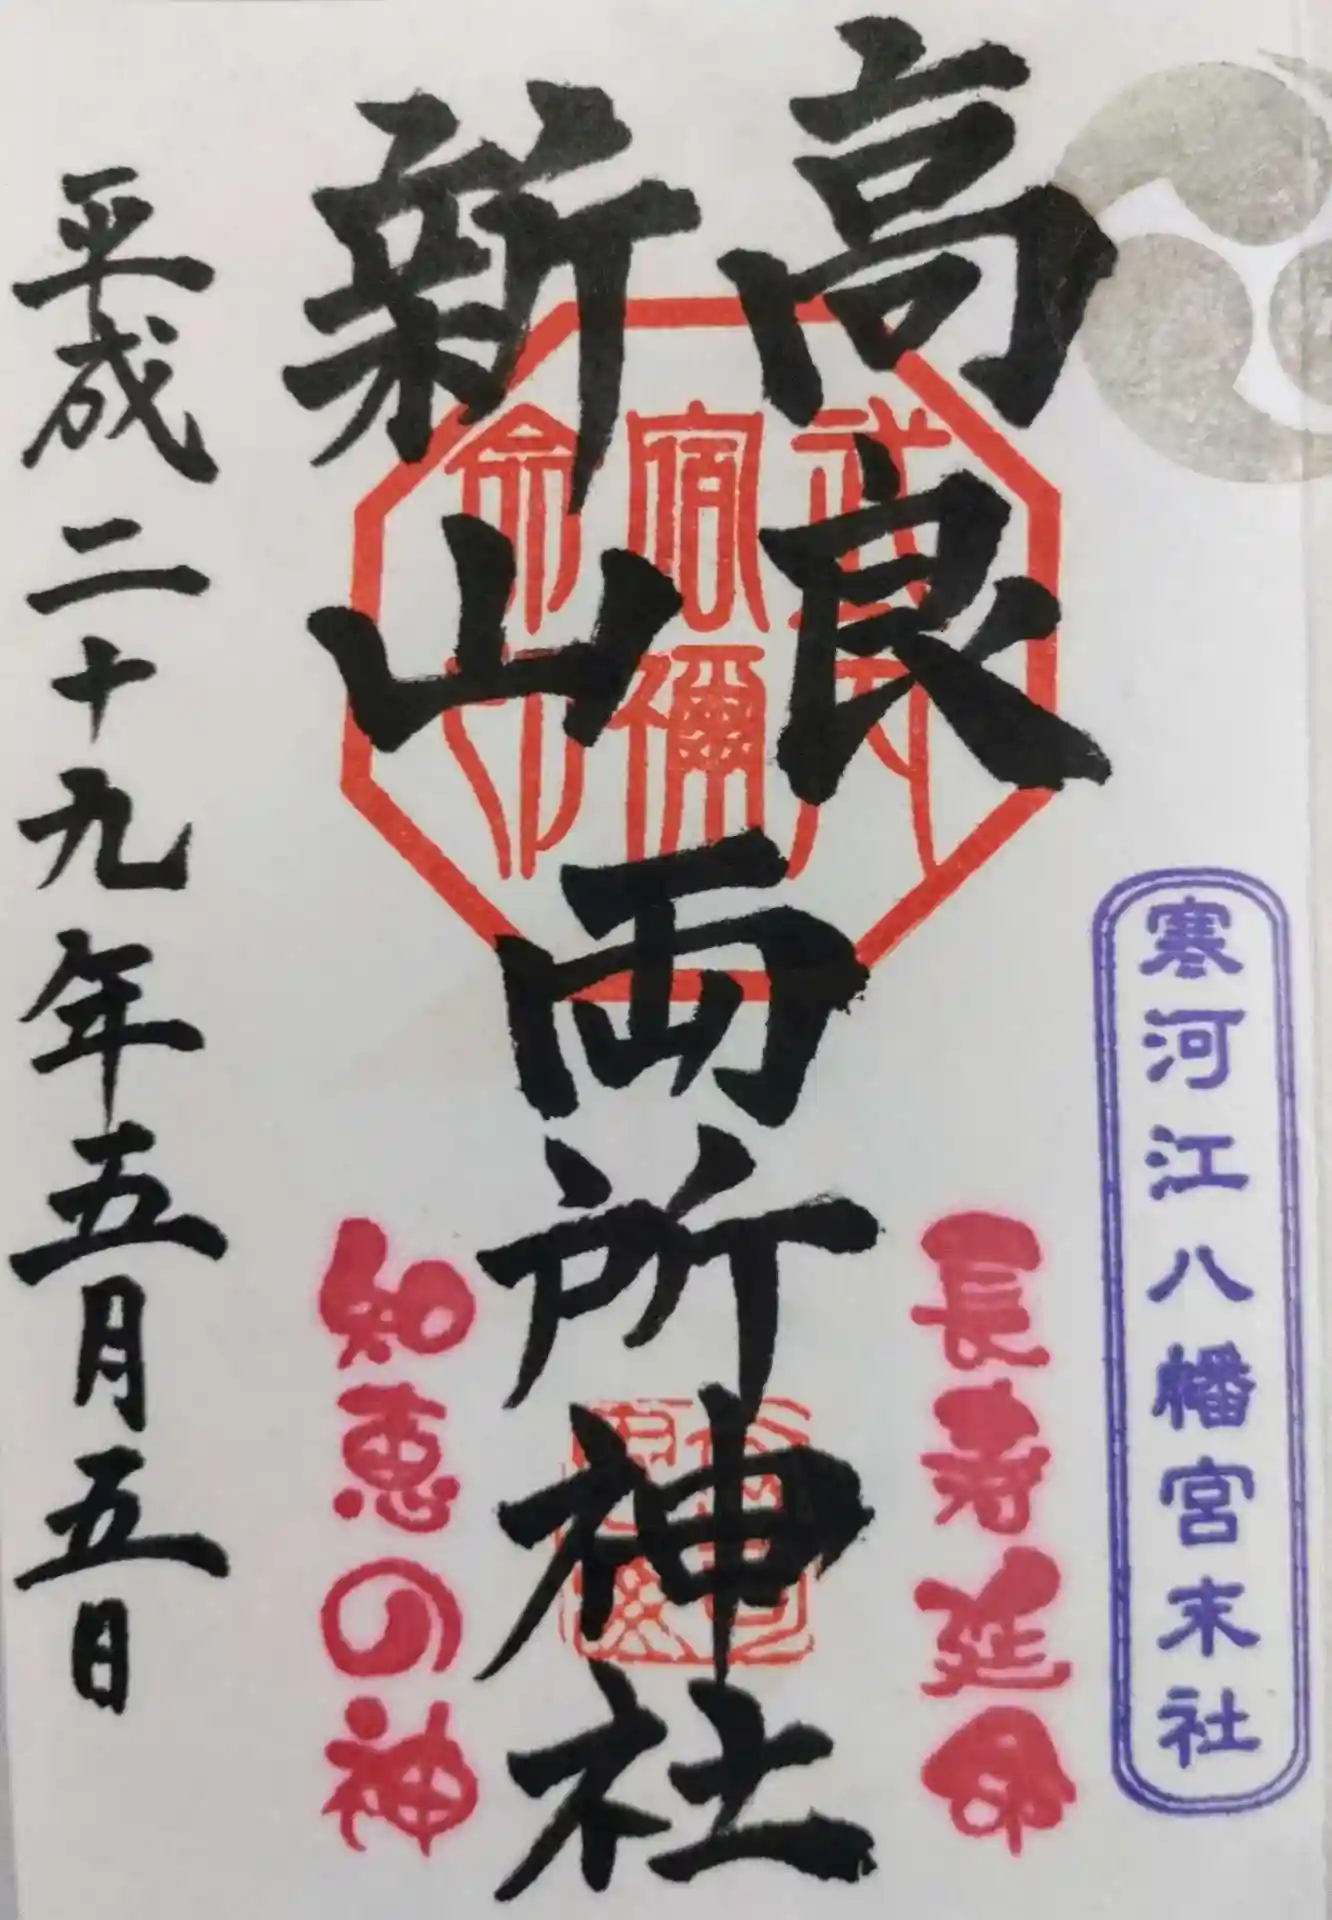 寒河江八幡宮末社
高良
新山
両所神社
長寿延命
知恵の神
武内
宿禰
命印
平成二十九年五月五日